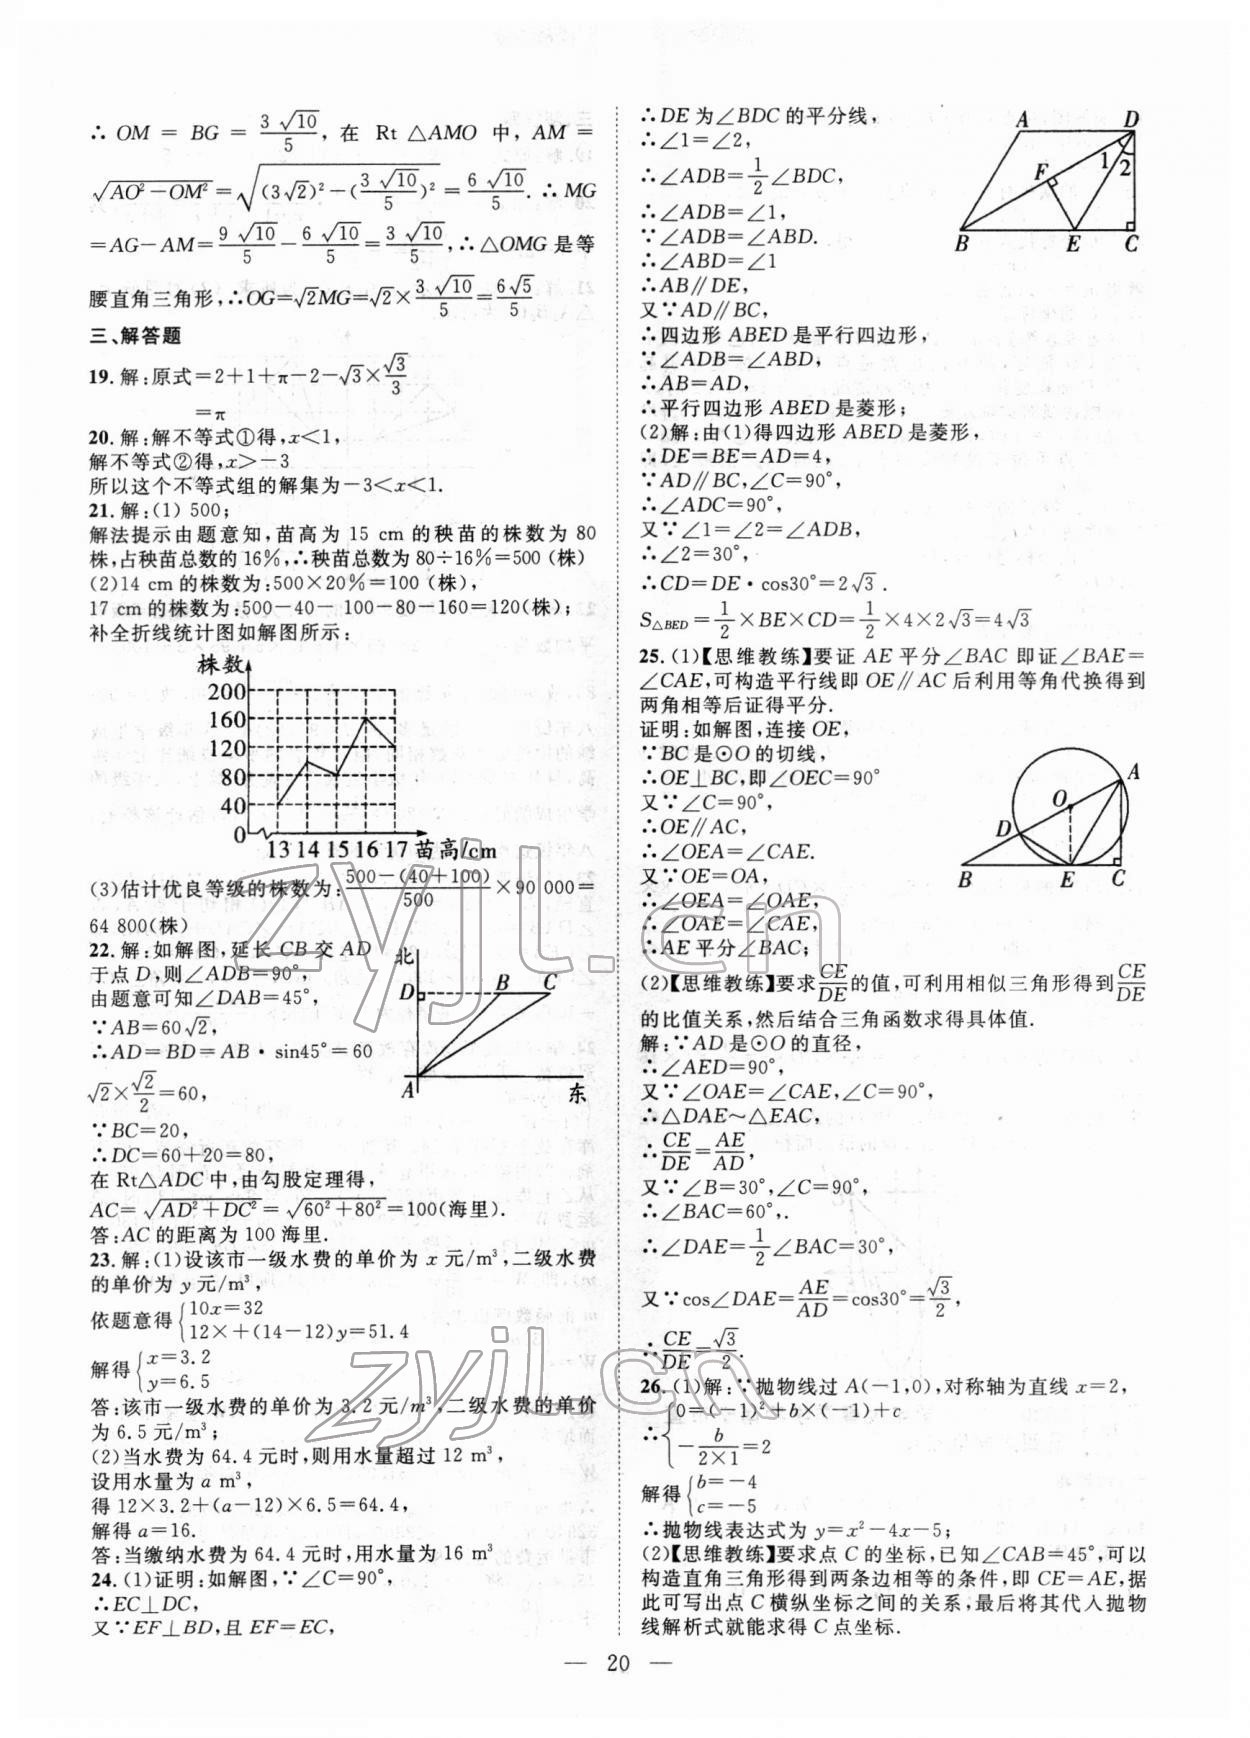 ∴ OM = BG = 3√10/5, 在 Rt △AMO 中, AM =
√(AO²-OM²)=√((3√2)²-(3√10/5)²)=6√10/5. ∴MG
=AG-AM=9√10/5-6√10/5=3√10/5,∴△OMG是等
腰直角三角形,∴OG=√2MG=√2×3√10/5=6√5/5
三、解答题
19.解:原式=2+1+π-2-√3×√3/3
=π
20.解:解不等式①得,x<1,
解不等式②得,x>-3
所以这个不等式组的解集为-3<x<1.
21.解:(1) 500;
解法提示由题意知,苗高为 15 cm 的秧苗的株数为 80
株,占秧苗总数的16%,∴秧苗总数为80÷16%=500 (株)
(2)14 cm的株数为:500×20%=100 (株),
17 cm的株数为:500-40-100-80-160=120(株);
补全折线统计图如解图所示:
株数
200
160
120
80
40
0
13 14 15 16 17 苗高/cm
(3)估计优良等级的株数为:(500-(40+100))/500×90 000=
64 800(株)
22.解:如解图,延长 CB 交 AD
于点 D,则∠ADB=90°,
由题意可知∠DAB=45°,
∵AB=60√2,
∴AD=BD=AB·sin45°=60
√2×√2/2=60,
∵BC=20,
∴DC=60+20=80,
在 Rt△ADC 中,由勾股定理得,
AC=√(AD²+DC²)=√(60²+80²)=100(海里).
答:AC的距离为 100 海里.
北
D B C
A 东
23.解:(1)设该市一级水费的单价为 x 元/m³,二级水费
的单价为 y 元/m³,
依题意得{10x=32
12×+(14-12)y=51.4
解得{x=3.2
y=6.5
答:该市一级水费的单价为 3.2 元/m³,二级水费的单价
为 6.5元/m³;
(2)当水费为 64.4元时,则用水量超过 12 m³,
设用水量为 a m³,
得 12×3.2+(a-12)×6.5=64.4,
解得 a=16.
答:当缴纳水费为 64.4 元时,用水量为 16 m³
24.(1)证明:如解图,∵∠C=90°,
∴EC⊥DC,
又∵EF⊥BD,且 EF=EC,
∴DE为∠BDC的平分线,
∴∠1=∠2,
∴∠ADB=1/2∠BDC,
∴∠ADB=∠1,
∵∠ADB=∠ABD.
∴∠ABD=∠1
∴AB∥DE,
又∵AD∥BC,
∴四边形 ABED 是平行四边形,
∵∠ADB=∠ABD,
∴AB=AD,
∴平行四边形 ABED是菱形;
A D
1 2
F
B E C
(2)解:由(1)得四边形 ABED是菱形,
∴DE=BE=AD=4,
∵AD∥BC,∠C=90°,
∴∠ADC=90°,
又∵∠1=∠2=∠ADB,
∴∠2=30°,
∴CD=DE·cos30°=2√3.
S△BED=1/2×BE×CD=1/2×4×2√3=4√3
25.(1)【思维教练】要证 AE 平分∠BAC 即证∠BAE=
∠CAE,可构造平行线即 OE∥AC 后利用等角代换得到
两角相等后证得平分.
证明:如解图,连接 OE,
∵BC是⊙O的切线,
∴OE⊥BC,即∠OEC=90°
又∵∠C=90°,
∴OE∥AC,
∴∠OEA=∠CAE.
又∵OE=OA,
∴∠OEA=∠OAE,
∴∠OAE=∠CAE,
∴AE平分∠BAC;
A
O
D
B E C
(2)【思维教练】要求CE/DE的值,可利用相似三角形得到CE/DE
的比值关系,然后结合三角函数求得具体值.
解:∵AD是⊙O的直径,
∴∠AED=90°,
又∵∠OAE=∠CAE,∠C=90°,
∴△DAE∽△EAC,
∴CE/DE=AE/AD,
又∵∠B=30°,∠C=90°,
∴∠BAC=60°,.
∴∠DAE=1/2∠BAC=30°,
又∵cos∠DAE=AE/AD=cos30°=√3/2,
∴CE/DE=√3/2.
26.(1)解:∵抛物线过 A(-1,0),对称轴为直线 x=2,
∴{0=(-1)²+b×(-1)+c
-b/(2×1)=2
解得{b=-4
c=-5
∴抛物线表达式为 y=x²-4x-5;
(2)【思维教练】要求点 C 的坐标,已知∠CAB=45°,可以
构造直角三角形得到两条边相等的条件,即 CE=AE,据
此可写出点 C 横纵坐标之间的关系,最后将其代入抛物
线解析式就能求得 C 点坐标.
— 20 —
zyjl.cn
zyjl.cn